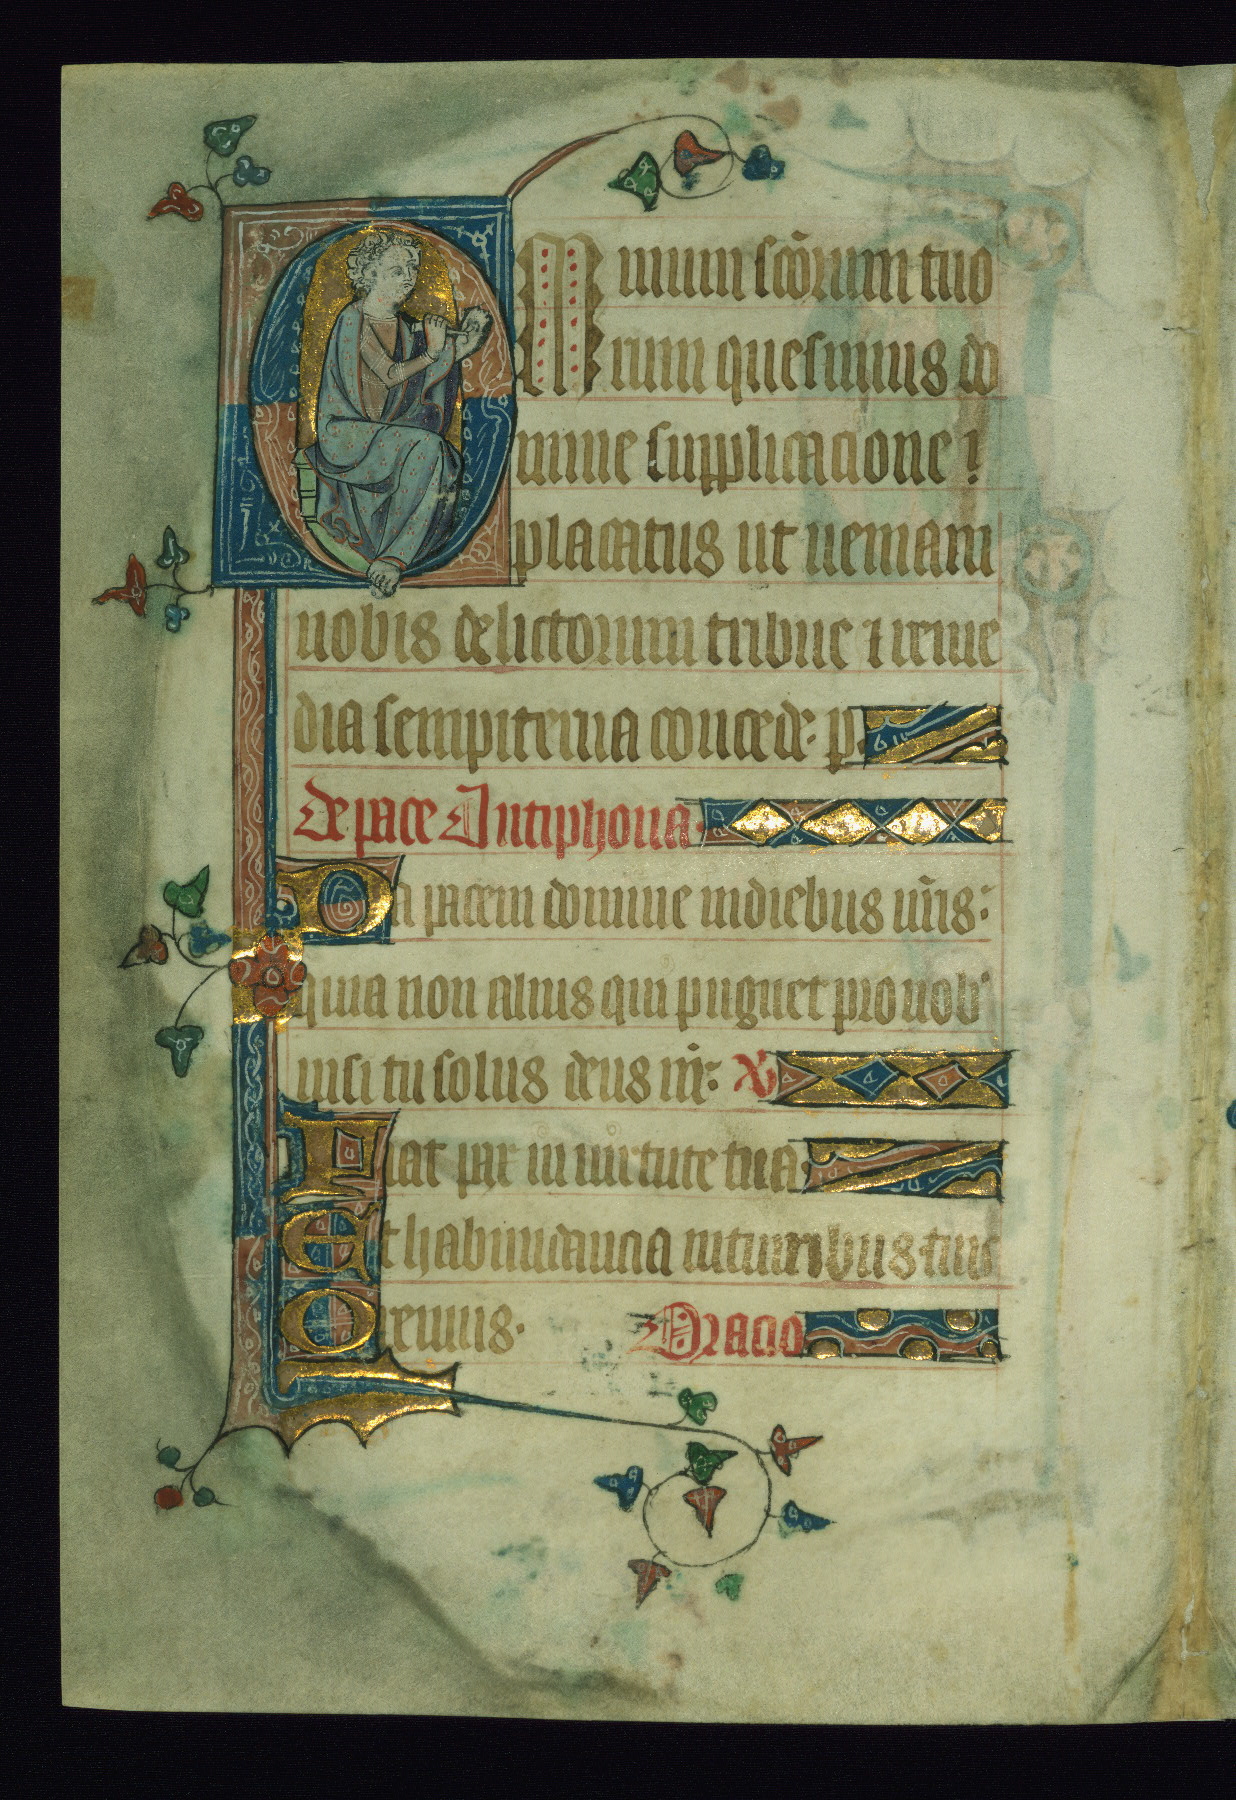 OMnium scōrum tuo
rum quesumus do
mine supplicacione ?
placatus ut ueniam
nobis delictorum tribue ⁊ reme
dia sempiterna concede· p.
de pace Antiphona·
Da pacem domine indiebus nr̄is·
quia non alius qui pugnet pro nob'
nisi tu solus deus nr̄·
Fiat pax in uirtute tua·
Et habundancia inturribus tuis
Oremus·
Oracio